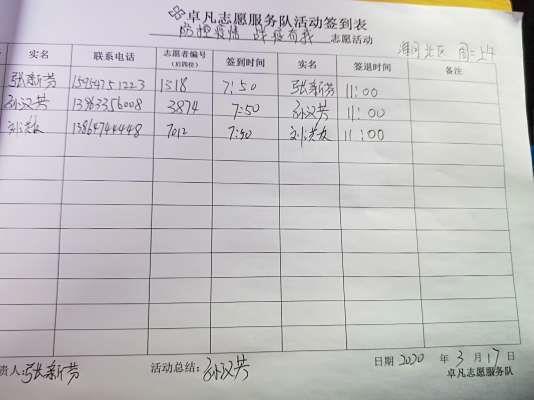 卓凡志愿服务队活动签到表
防控疫情 战疫有我 志愿活动 北区 周二上午
实名 联系电话 志愿者编号(后四位) 签到时间 实名 签退时间 备注
张新芳 15954751223 1518 7:50 张新芳 11:00
孙汉英 13963356008 3874 7:50 孙汉英 11:00
刘 13864744448 7012 7:50 刘 11:00
责人:张新芳 活动总结: 孙汉英 日期 2020 年 3 月 17 日
卓凡志愿服务队